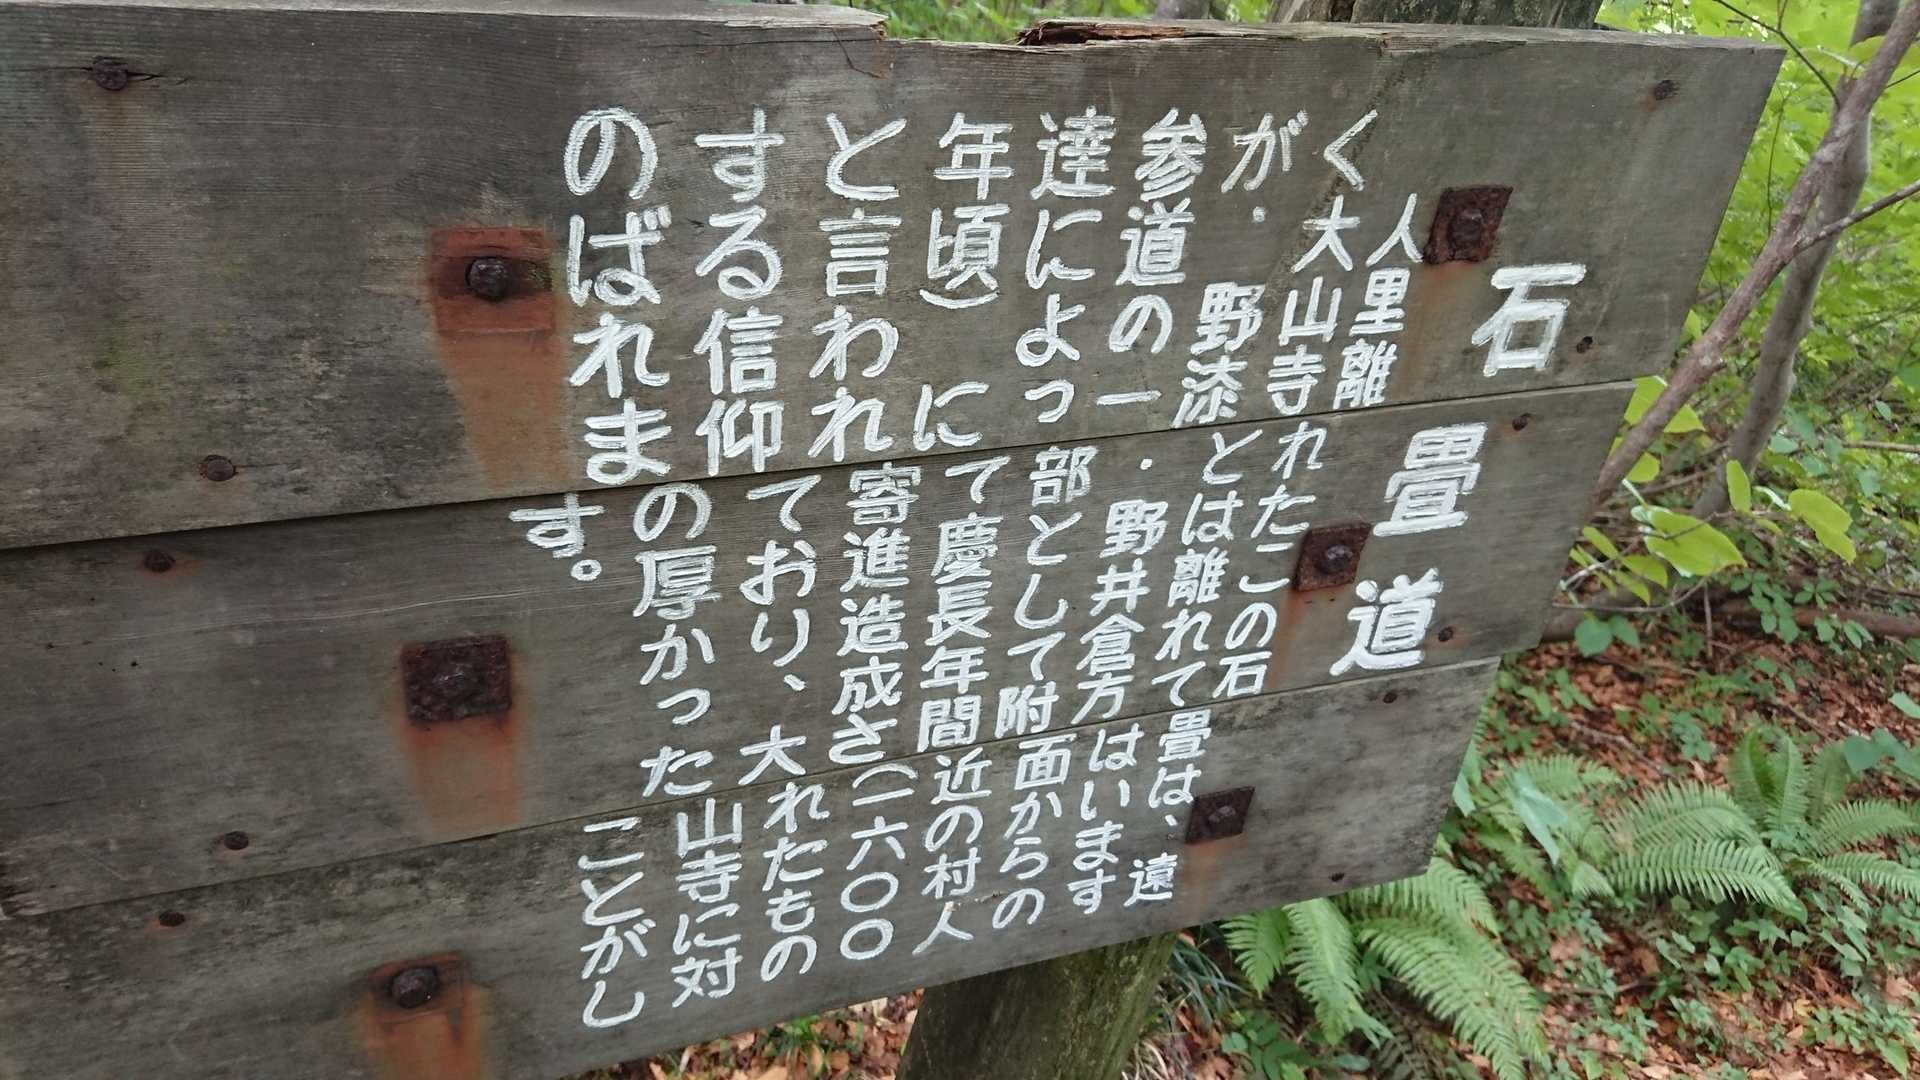 石畳道
人里離れたこの石畳は、遠
く大山寺とは離れてはいます
が、野添・野井倉方面からの
参道の一部として附近の村人
達によって慶長年間(一六〇〇
年頃)に寄進造成されたもの
と言われており、大山寺に対
する信仰の厚かったことがし
のばれます。